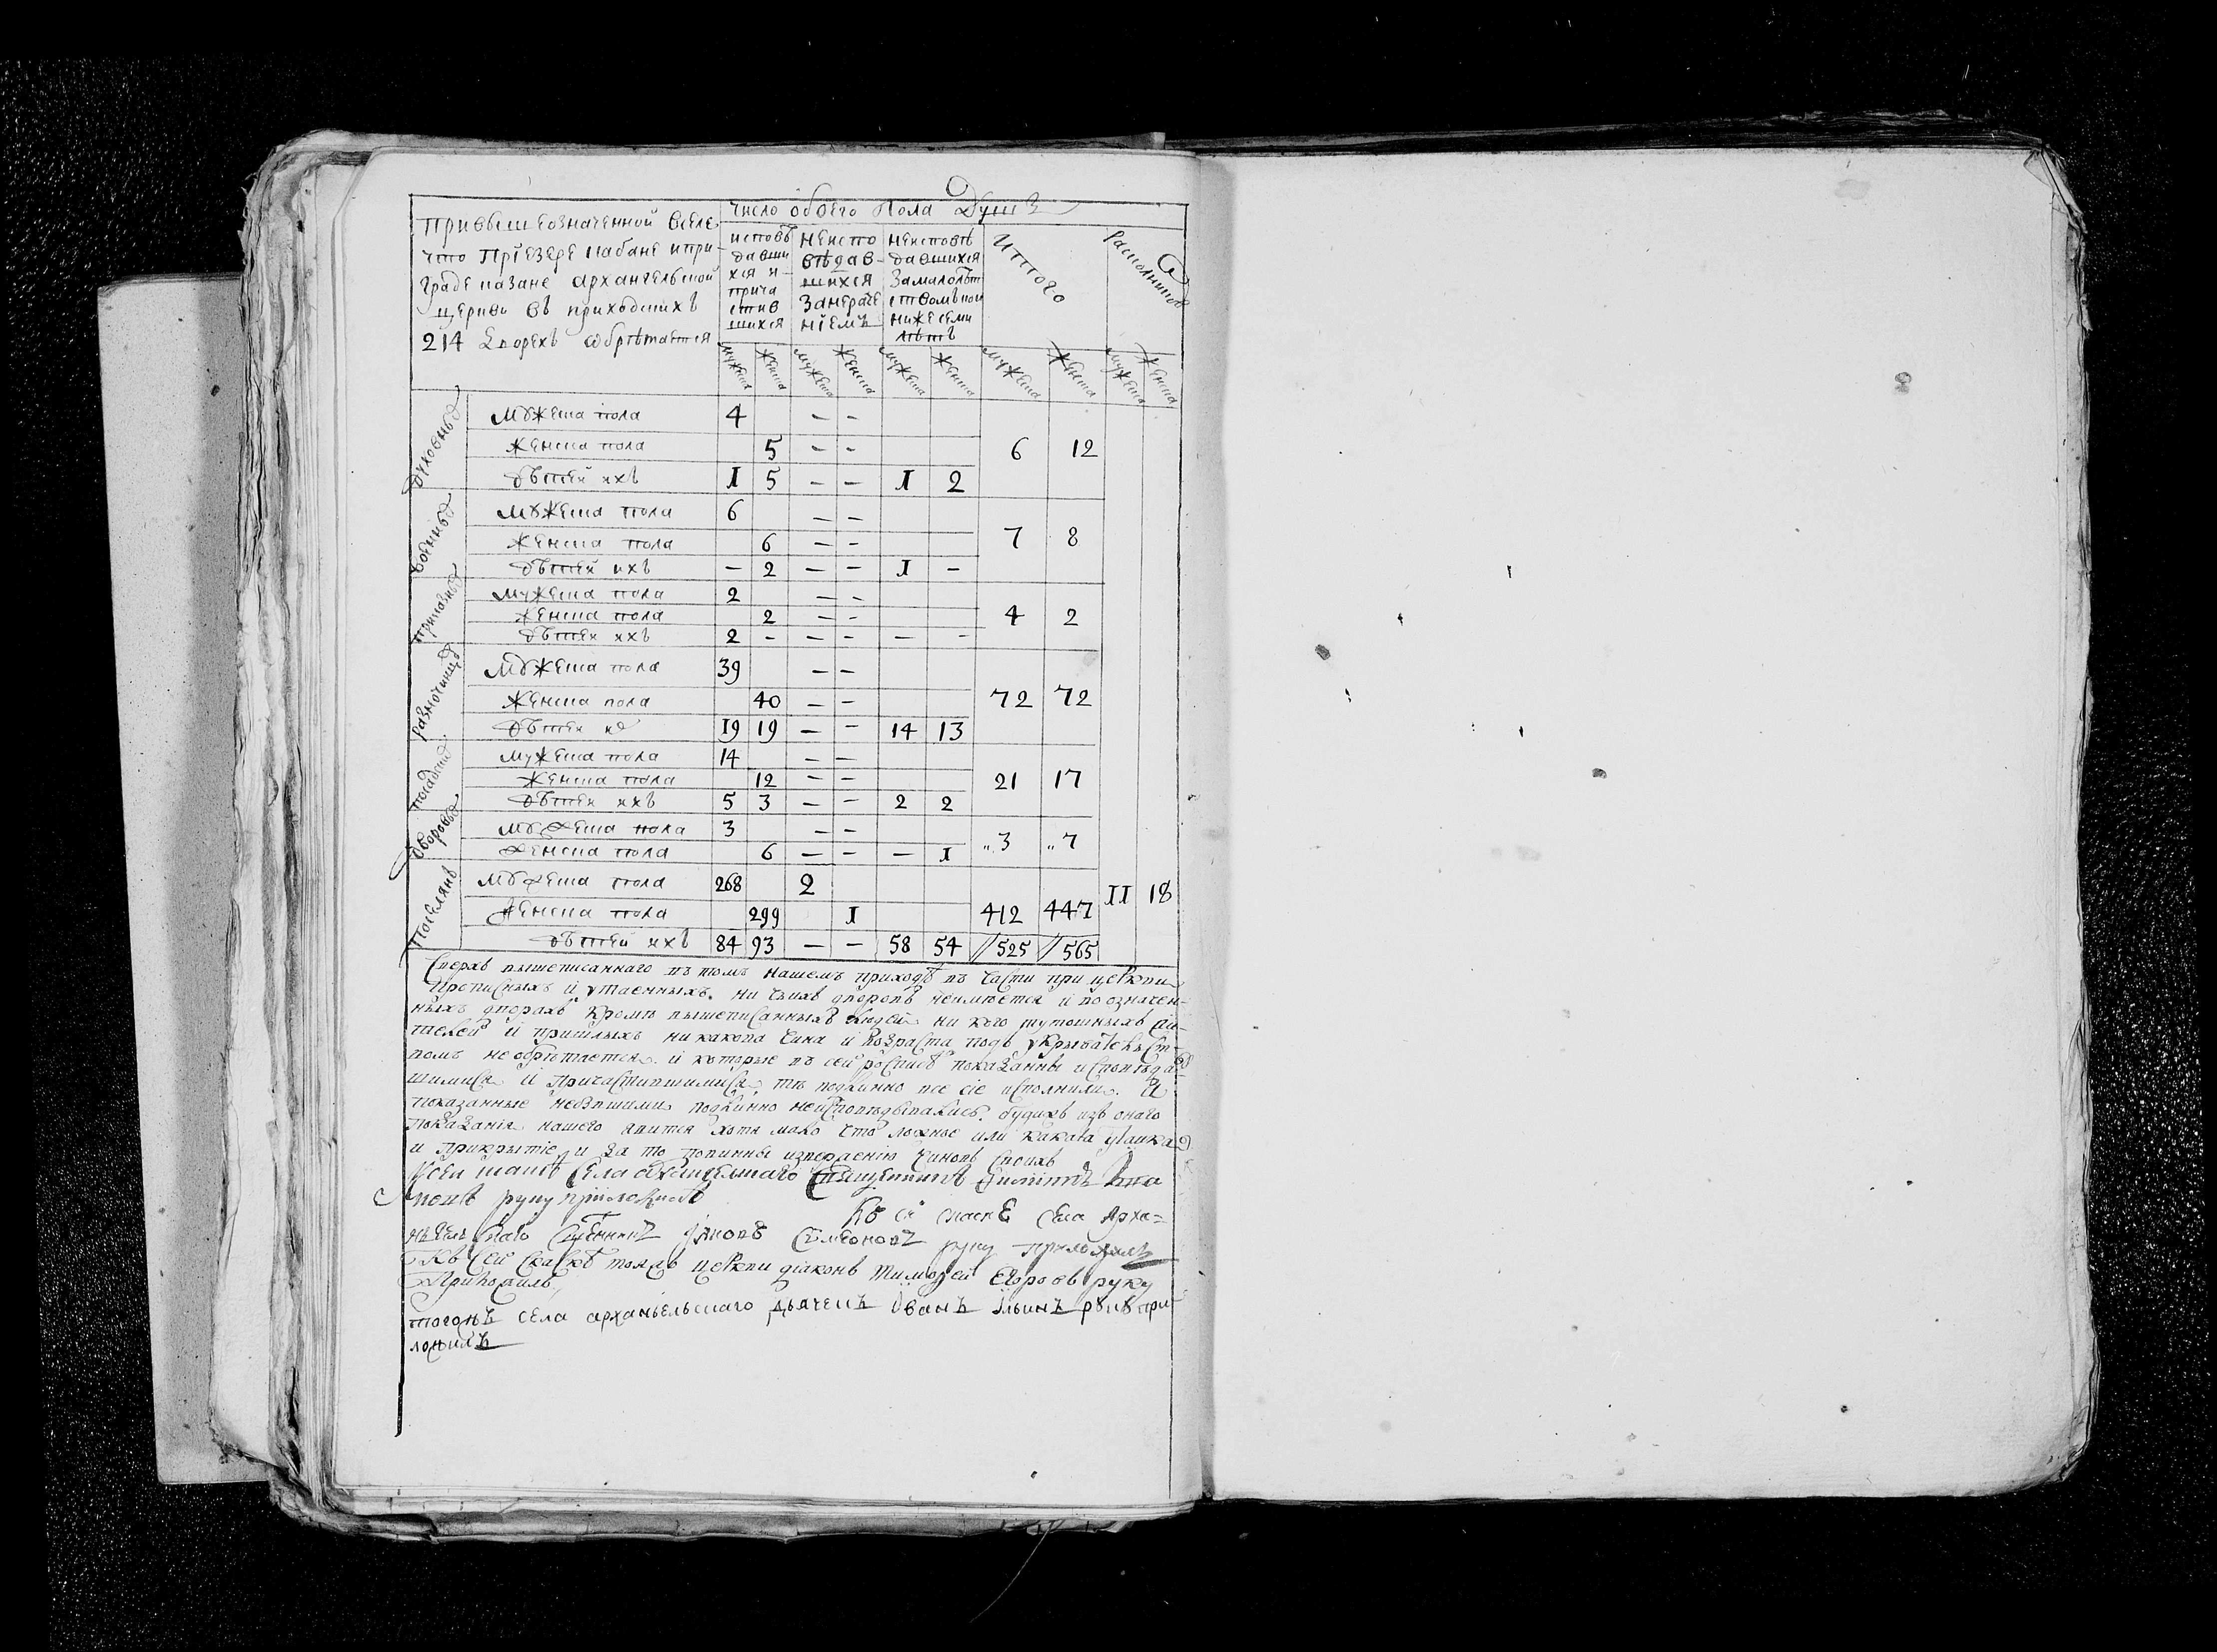 Число обоего пола душъ
При вышеозначенной в селе
что при езере Кабане и при
граде Казане архангельской
церкви въ приходскихъ
214 дворехъ обретается
исповѣдавшихся и причастившихся
неисповѣдавшихся за нерачениемъ
неисповѣдавшихся за малолѣтствомъ кои ниже семи лѣтъ
Итого
Раскольниковъ
мужеска женска мужеска женска мужеска женска мужеска женска мужеска женска
духовныхъ
мужеска пола 4 – –
женска пола 5 – – 6 12
дѣтей ихъ 1 5 – – 1 2
военныхъ
мужеска пола 6 – –
женска пола 6 – – 7 8
дѣтей ихъ – 2 – – 1 –
приказныхъ
мужеска пола 2 – –
женска пола 2 – – 4 2
дѣтей ихъ 2 – – – – –
разночинцовъ
мужеска пола 39 – –
женска пола 40 – – 72 72
дѣтей их 19 19 – – 14 13
посадских
мужеска пола 14 – –
женска пола 12 – – 21 17
дѣтей ихъ 5 3 – – 2 2
дворовых
мужеска пола 3 – – 3 7
женска пола 6 – – – 1
поселянъ
мужеска пола 268 2 11 18
женска пола 299 1 412 447
дѣтей ихъ 84 93 – – 58 54 525 565
Сверхъ вышеписаннаго въ томъ нашемъ приходѣ въ части при церкви
прописныхъ и утаенныхъ ни чьихъ дворовъ неимѣется и по означен-
ныхъ дворахъ кромѣ вышеписанныхъ людей ни кого тутошныхъ жи-
телей и пришлыхъ ни какова чина и возраста подъ укрывателст-
вомъ необрѣтается и которые въ сей росписѣ показанны исповѣда-
шимися и причастившимися тѣ подлинно все сіе исполнили. А
показанные небывшими подлинно неисповѣдывались. будихъ изъ онаго
показания нашего явится хотя мало что ложное или какая утайка
и прикрытіе и за то повинны извержению чиновъ своихъ
К сей скаскѣ села архангелскаго священникъ
руку приложилъ
Къ сей скаске села Арха-
нгельскаго священникъ Iяковъ Симеоновъ руку приложилъ
Къ сей скаскѣ тояжъ церкви діаконъ Тимоѳей Егоровъ руку
приложилъ
тогожъ села архангельскаго дьячекъ Иванъ Ильинъ руку при-
ложилъ